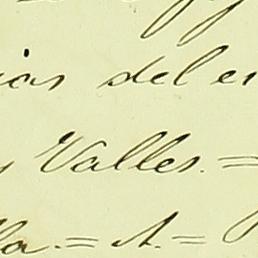 ias del en
y Valles. =
la. = A. =